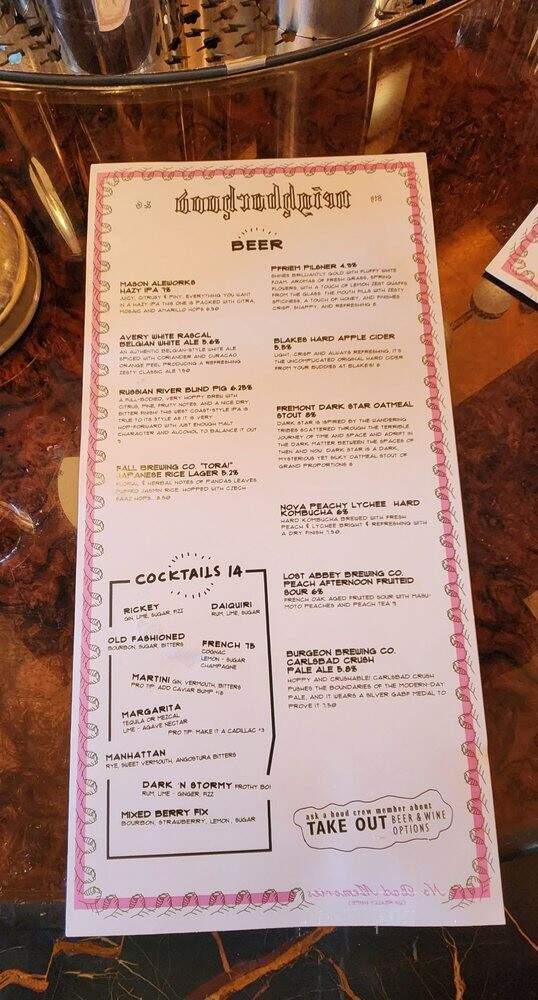 BEER
MASON ALEWORKS
HAZY IPA 7%
JUICY, CITRUSY & PINY, EVERYTHING YOU WANT
IN A HAZY IPA THIS ONE IS PACKED WITH CITRA,
MOSAIC AND AMARILLO HOPS 8.50
AVERY WHITE RASCAL
BELGIAN WHITE ALE 5.6%
AN AUTHENTIC BELGIAN-STYLE WHITE ALE
SPICED WITH CORIANDER AND CURACAO
ORANGE PEEL PRODUCING A REFRESHING
ZESTY CLASSIC ALE 7.50
RUSSIAN RIVER BLIND PIG 6.25%
A FULL-BODIED, VERY HOPPY BREW WITH
CITRUS, PINE, FRUITY NOTES, AND A NICE DRY,
BITTER FINISH THIS WEST COAST-STYLE IPA IS
TRUE TO ITS STYLE AS IT IS VERY
HOP-FORWARD WITH JUST ENOUGH MALT
CHARACTER AND ALCOHOL TO BALANCE IT OUT
FALL BREWING CO. "TORA!"
JAPANESE RICE LAGER 5.2%
FLORAL & HERBAL NOTES OF PANDAS LEAVES
PUFFED JASMIN RICE. HOPPED WITH CZECH
SAAZ HOPS. 8.50
PFRIEM PILSNER 4.9%
SHINES BRILLIANTLY GOLD WITH FLUFFY WHITE
FOAM. AROMAS OF FRESH GRASS, SPRING
FLOWERS, WITH A TOUCH OF LEMON ZEST QUAFFS
FROM THE GLASS. THE MOUTH FILLS WITH ZESTY
SPICINESS, A TOUCH OF HONEY, AND FINISHES
CRISP, SNAPPY, AND REFRESHING 8
BLAKES HARD APPLE CIDER
5.5%
LIGHT, CRISP AND ALWAYS REFRESHING, IT'S
THE UNCOMPLICATED ORIGINAL HARD CIDER
FROM YOUR BUDDIES AT BLAKE'S! 8
FREMONT DARK STAR OATMEAL
STOUT 8%
DARK STAR IS INSPIRED BY THE WANDERING
TRIBES SCATTERED THROUGH THE TERRIBLE
JOURNEY OF TIME AND SPACE AND ADRIFT IN
THE DARK MATTER BETWEEN THE SPACES OF
THEN AND NOW. DARK STAR IS A DARK,
MYSTERIOUS YET SILKY OATMEAL STOUT OF
GRAND PROPORTIONS 8
NOVA PEACHY LYCHEE HARD
KOMBUCHA 6%
HARD KOMBUCHA BREWED WITH FRESH
PEACH & LYCHEE BRIGHT & REFRESHING WITH
A DRY FINISH 7.50
LOST ABBEY BREWING CO.
PEACH AFTERNOON FRUITEID
SOUR 6%
FRENCH OAK AGED FRUITED SOUR WITH MASU-
MOTO PEACHES AND PEACH TEA 9
BURGEON BREWING CO.
CARLSBAD CRUSH
PALE ALE 5.8%
HOPPY AND CRUSHABLE! CARLSBAD CRUSH
PUSHES THE BOUNDARIES OF THE MODERN-DAY
PALE, AND IT WEARS A SILVER GABF MEDAL TO
PROVE IT 7.50
COCKTAILS 14
RICKEY
GIN, LIME, SUGAR, FIZZ
DAIQUIRI
RUM, LIME, SUGAR
OLD FASHIONED
BOURBON, SUGAR, BITTERS
FRENCH 75
COGNAC
LEMON - SUGAR
CHAMPAGNE
MARTINI GIN, VERMOUTH, BITTERS
PRO TIP: ADD CAVIAR BUMP +18
MARGARITA
TEQUILA OR MEZCAL
LIME - AGAVE NECTAR
PRO TIP: MAKE IT A CADILLAC +3
MANHATTAN
RYE, SWEET VERMOUTH, ANGOSTURA BITTERS
DARK 'N STORMY FROTHY BOI
RUM, LIME - GINGER, FIZZ
MIXED BERRY FIX
BOURBON, STRAWBERRY, LEMON, SUGAR
ask a hood crew member about
TAKE OUT BEER & WINE
OPTIONS